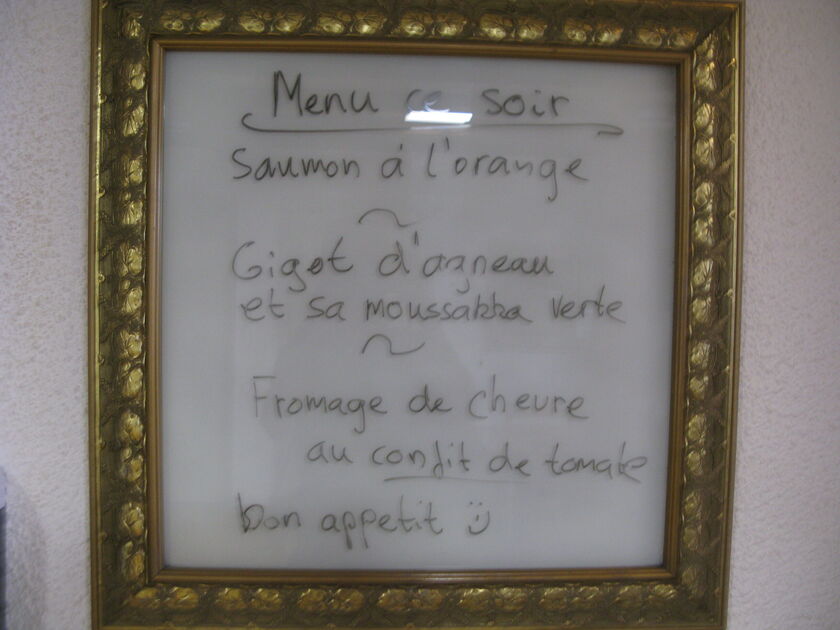 Menu ce soir
Saumon á l'orange
~
Gigot d'agneau
et sa moussakka verte
~
Fromage de chevre
au confit de tomate
bon appetit :)